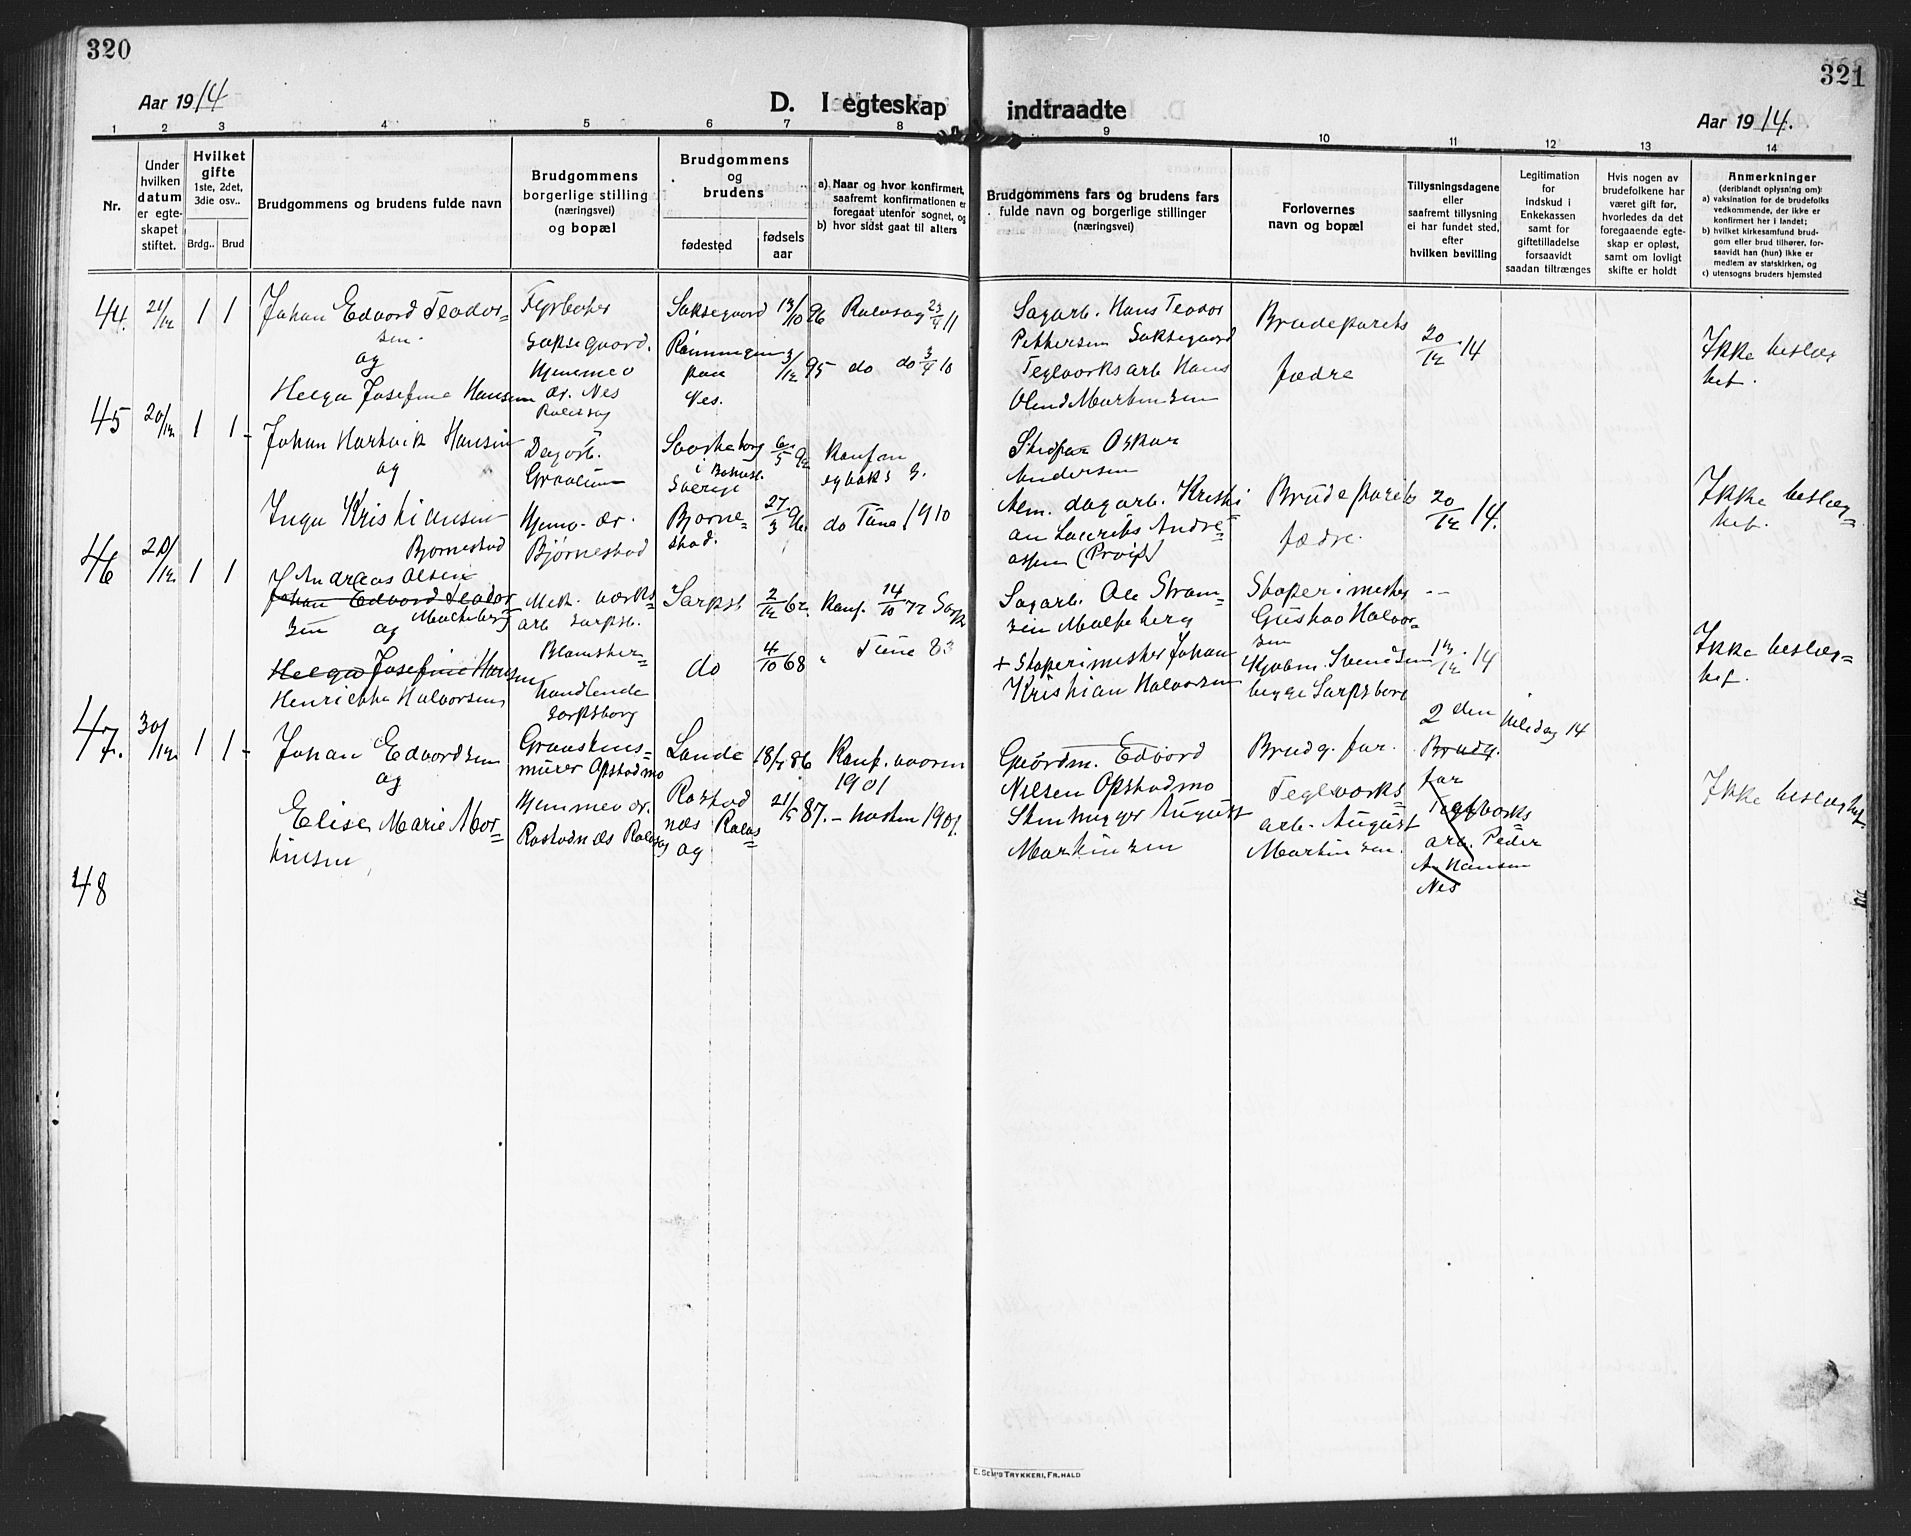 320
321
Aar 1914
D. I egteskap indtraadte
Aar 1914.
1 2 3 4 5 6 7 8 9 10 11 12 13 14
Nr.
Under
hvilken
datum
er egte-
skapet
stiftet.
Hvilket
gifte
1ste, 2det,
3die osv..
Brdg..
Brud
Brudgommens og brudens fulde navn
Brudgommens
borgerlige stilling
(næringsvei)
og bopæl
Brudgommens
og
brudens
fødested
fødsels
aar
a) Naar og hvor konfirmert,
saafremt konfirmationen er
foregaat utenfor sognet, og
b) hvor sidst gaat til alters
Brudgommens fars og brudens fars
fulde navn og borgerlige stillinger
(næringsvei)
Forlovernes
navn og bopæl
Tillysningsdagene
eller
saafremt tillysning
ei har fundet sted,
efter
hvilken bevilling
Legitimation
for
indskud i
Enkekassen
samt for
giftetilladelse
forsaavidt
saadan tiltrænges
Hvis nogen av
brudefolkene har
været gift før,
hvorledes da det
foregaaende egte-
skap er opløst,
samt om lovligt
skifte er holdt
Anmerkninger
(deriblandt oplysning om):
a) vaksination for de brudefolks
vedkommende, der ikke er
konfirmert her i landet;
b) hvilket kirkesamfund brud-
gom eller brud tilhører, for-
saavidt han (hun) ikke er
medlem av statskirken, og
c) utensogns bruders hjemsted
44. 21/12 1 1
Johan Edvard Teodor-
sen
og
Helga Josefine Hansen
Fyrbøter
Saksegaard.
Hjemmev
dr. Nes
Rolvsøy
Saksegaard 13/10 96 Rolvsøy 23/4 11
Rømmingen 3/12 95 do do 3/4 10
Nes.
Sagarb. Hans Teodor
Pettersen Saksegaard
Teglverksarb Hans
Olend Martinsen
Brudeparets
fædre
20/12 14
Ikke beslæg
tet.
45 20/12 1 1
Johan Hartvik Hansen
og
Inga Kristiansen
Bjørnestad
Dagarb.
Graalum
Hjemv. dr.
Bjørnestad
i Bohusl.
Sverige 6/5 92
Bjørne-
stad. 27/3 96.
do Tune 1910
Oskar
Andersen
dagarb. Kristi
an Laurits Andre-
assen
Brudeparets
fædre.
20/12 14.
Ikke beslæg-
tet.
46 20/12 1 1
Andreas Olsen
Johan Edvard Teodor
sen og
Helga Josefine Hansen
Henrikke Halvorsen
Mek. værks-
arb Sarpsb.
Blomster-
handlende
Sarpsborg
Sarpsb 2/12 62. Konf. 14/10 77 Sarp
do 4/10 68 " Tune 83
Sagarb. Ole Strøm-
sen
+ Støperimester Johan
Kristian Halvorsen
Støperimester
Gustav Halvor-
sen
Kjøbm. Svendsen
Sarpsborg
13/12 14
Ikke beslæg-
tet.
47. 30/12 1 1
Johan Edvardsen
og
Elise Marie Mar-
tinsen
Graastens-
murer Opstadmo
Hjemmev dr.
Rostadnes Rolvsøy
Lande 18/7 86 Konf. vaaren
1901
Rostad
nes Rolvs
øy 21/5 87. - høsten 1901.
Gaardm. Edvard
Nilsen Opstadmo
Stenhugger August
Martinsen
Brudg. far.
Teglverks-
arb. August
Martinsen.
2 den juledag 14
Brudg.
far
Teglverks
arb. Peder
A. Hansen
Nes
Ikke beslægtet.
48
E. SEM'S TRYKKERI, FR.HALD